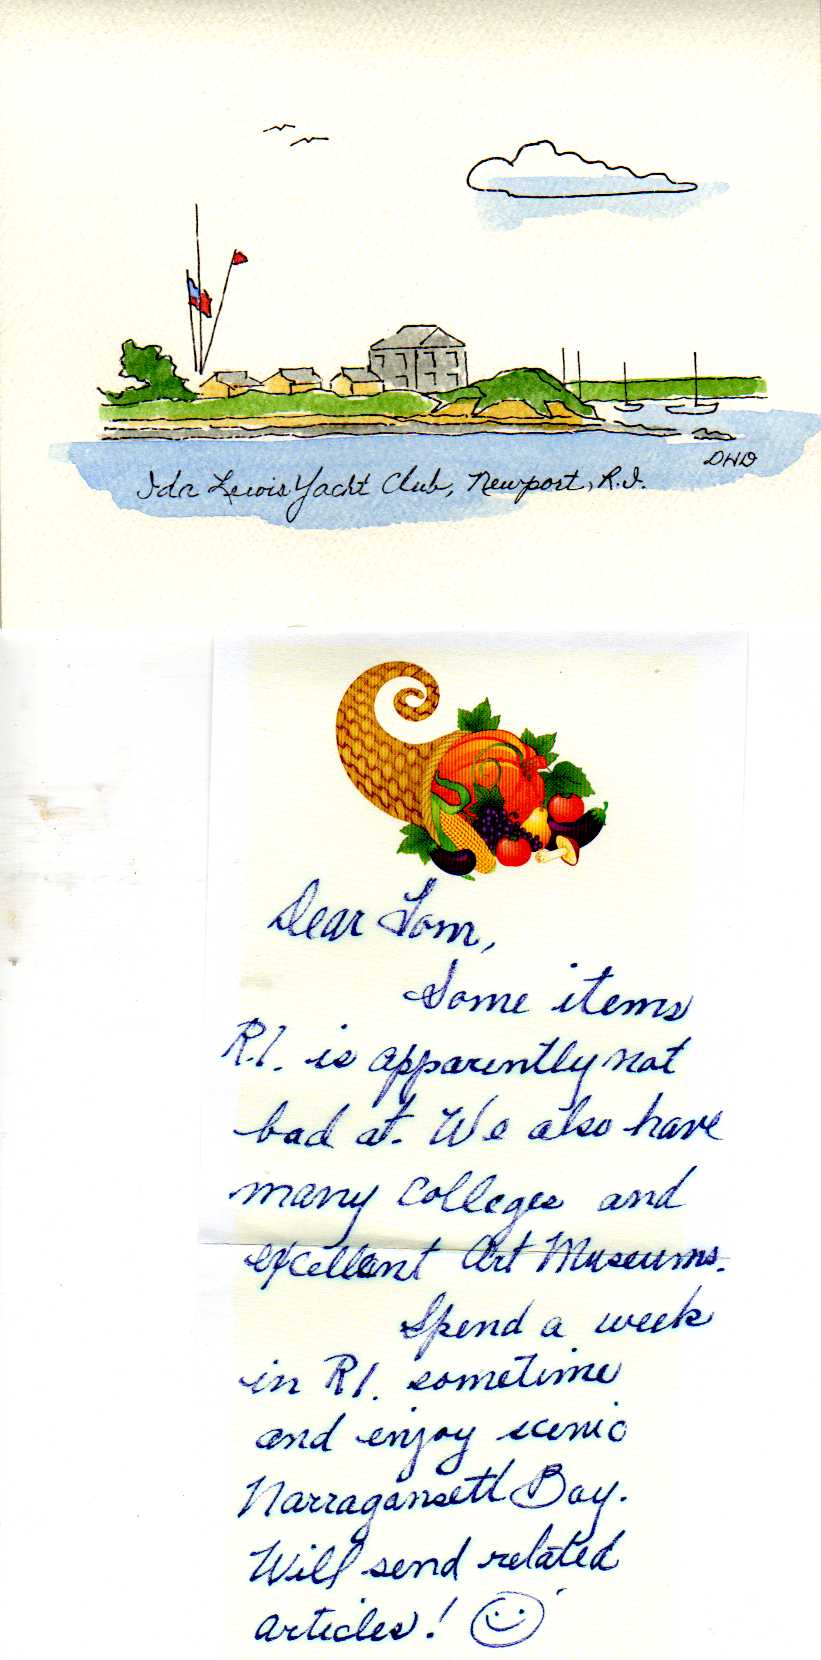 DHD
Ida Lewis Yacht Club, Newport, R.I.
Dear Tom,
Some items
R.I. is apparently not
bad at. We also have
many colleges and
excellent Art Museums.
Spend a week
in R.I. sometime
and enjoy scenic
Narragansett Bay.
Will send related
articles!